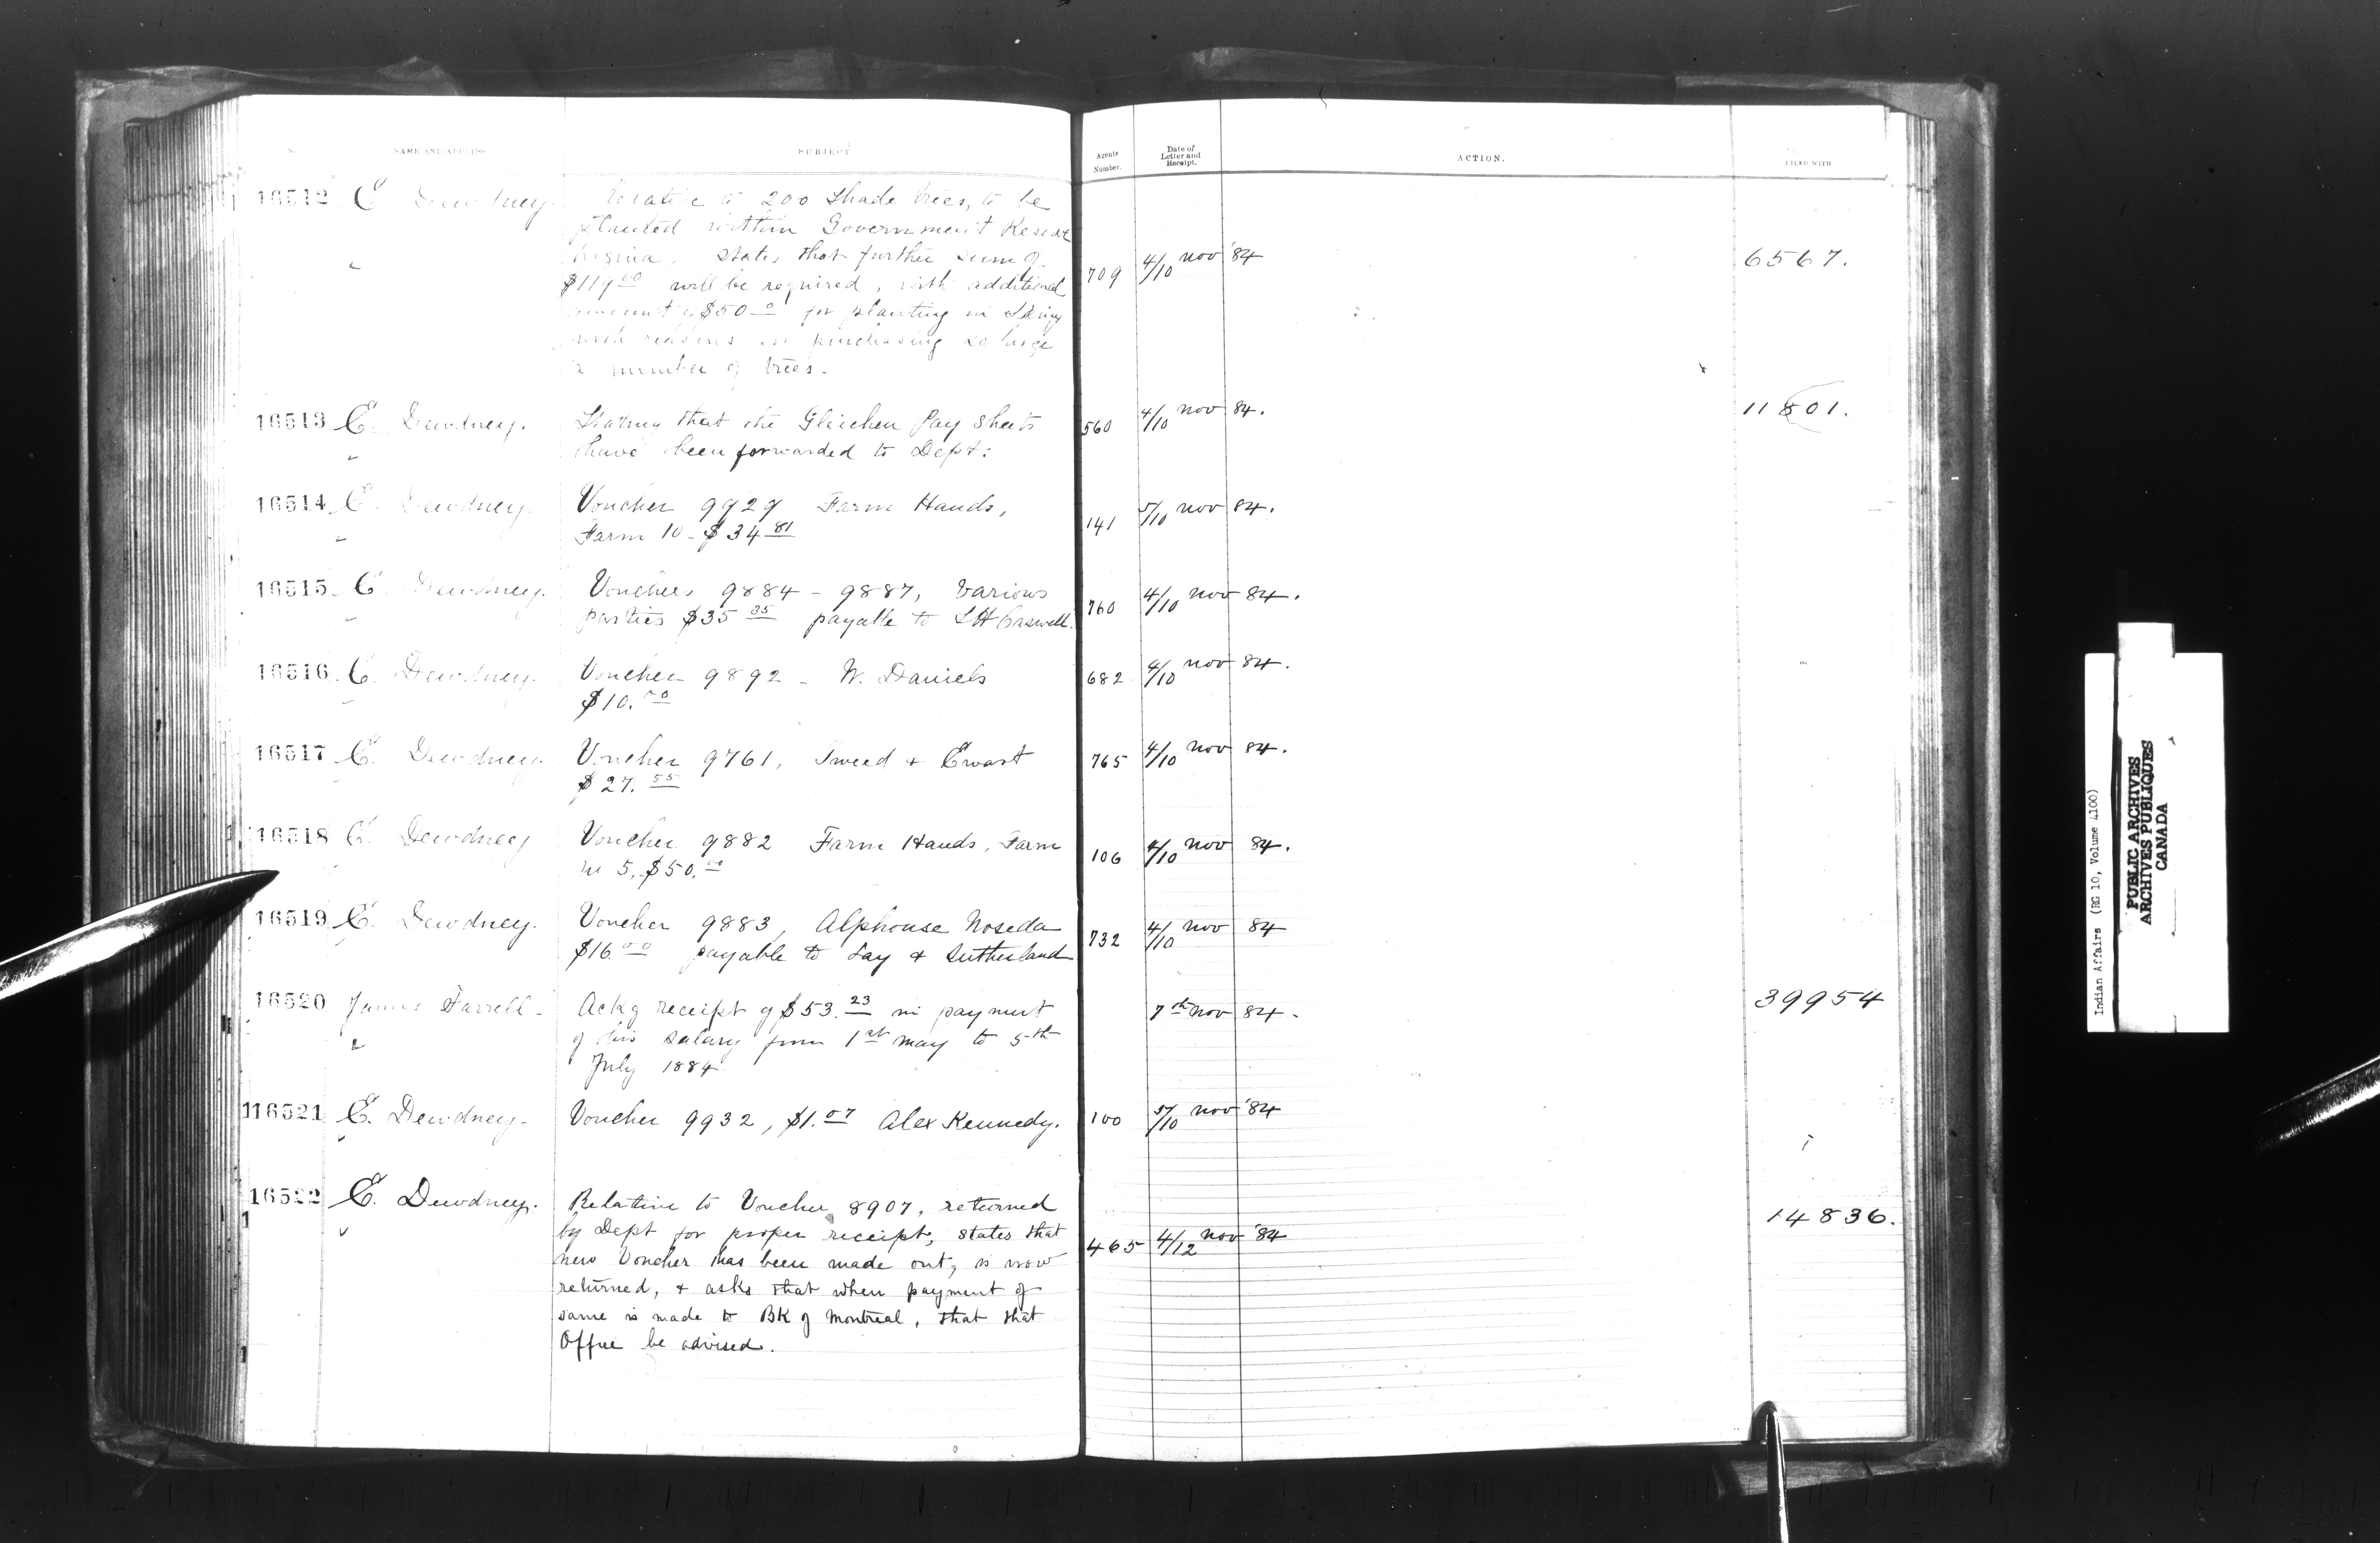 NAME AND ADDRESS SUBJECT Agents Number. Date of Letter and Receipt. ACTION. FILED WITH.
16512 E. Dewdney. Relative to 200 Shade trees, to be
planted within Government Reserve
Regina. States that further sum of 709 4/10 nov '84 6567.
$119.00 will be required, with additional
amount of $50.00 for planting in Spring
with reasons in purchasing so large
a number of trees.
16513 E. Dewdney. Stating that the Gleichen Pay Sheets 560 4/10 nov 84. 11801.
have been forwarded to Dept:
16514 E. Dewdney. Voucher 9929 Farm Hands, 141 5/10 nov 84.
Farm 10 - $34 81
16515 E. Dewdney. Vouchers 9884 - 9887, various 760 4/10 nov 84.
parties $35 35 payable to LH Caswell.
16516 E. Dewdney. Voucher 9892 - W. Daniels 682 4/10 nov 84.
$10.
16517 E. Dewdney. Voucher 9761, Tweed + Ewart 765 4/10 nov 84.
$27. 55
16518 E. Dewdney Voucher 9882 Farm Hands, Farm 106 4/10 nov 84.
5, $50.
16519 E. Dewdney. Voucher 9883, Alphonse Noseda 732 4/10 nov 84
$16 00 payable to Lay + Sutherland
16520 James Farrell - Ackg receipt of $53. 23 in payment 7th nov 84. 39954
of his salary from 1st may to 5th
July 1884
116521 E. Dewdney - Voucher 9932, $1. 07 Alex Kennedy. 100 5/10 nov '84
16522 E. Dewdney. Relative to Voucher 8907, returned 14836.
by Dept for proper receipt, states that 465 4/12 nov '84
new Voucher has been made out, is now
returned, + asks that when payment of
same is made to BK of Montreal, that that
Office be advised.
Indian Affairs (RG 10, Volume 4100)
PUBLIC ARCHIVES
ARCHIVES PUBLIQUES
CANADA